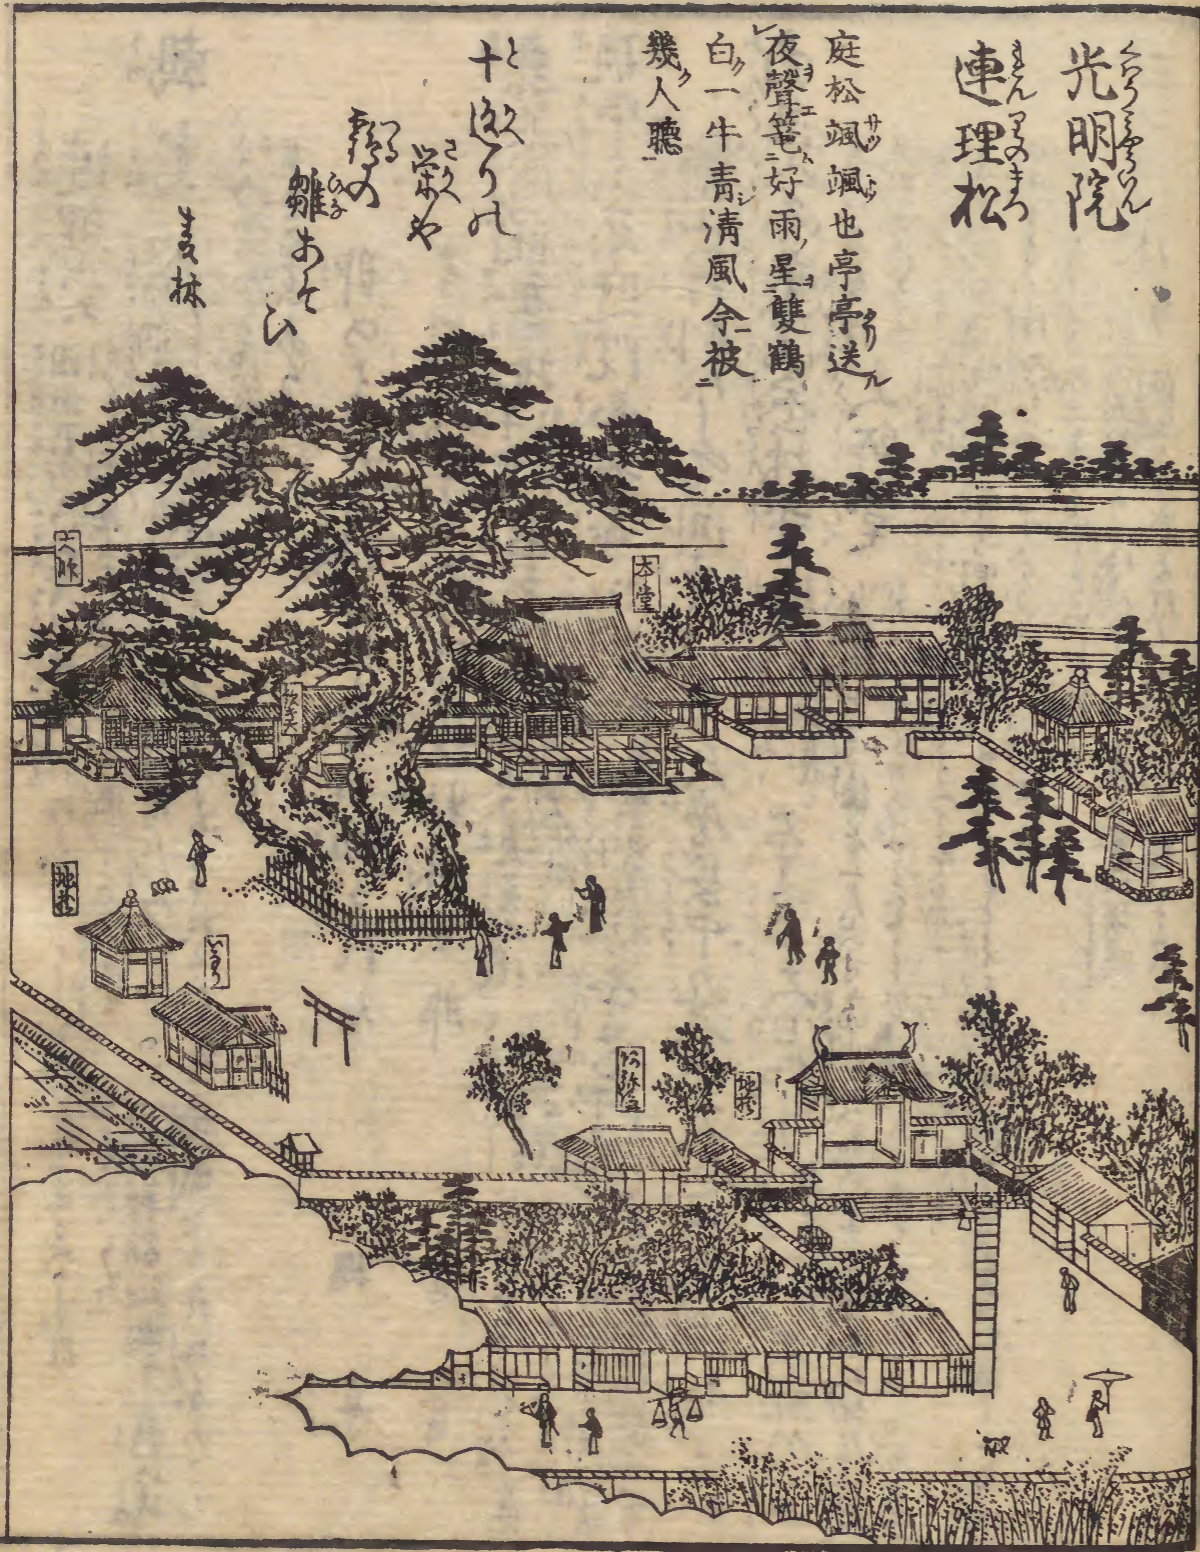 光明院
連理松
庭松颯颯也亭亭送
夜聲篭好雨星雙鶴
白一牛青淸風今被
幾人聽
十返りの
栄や
鶴の
雛あそ
ひ
麦林
本堂
地蔵
いなり
阿弥陀
地蔵